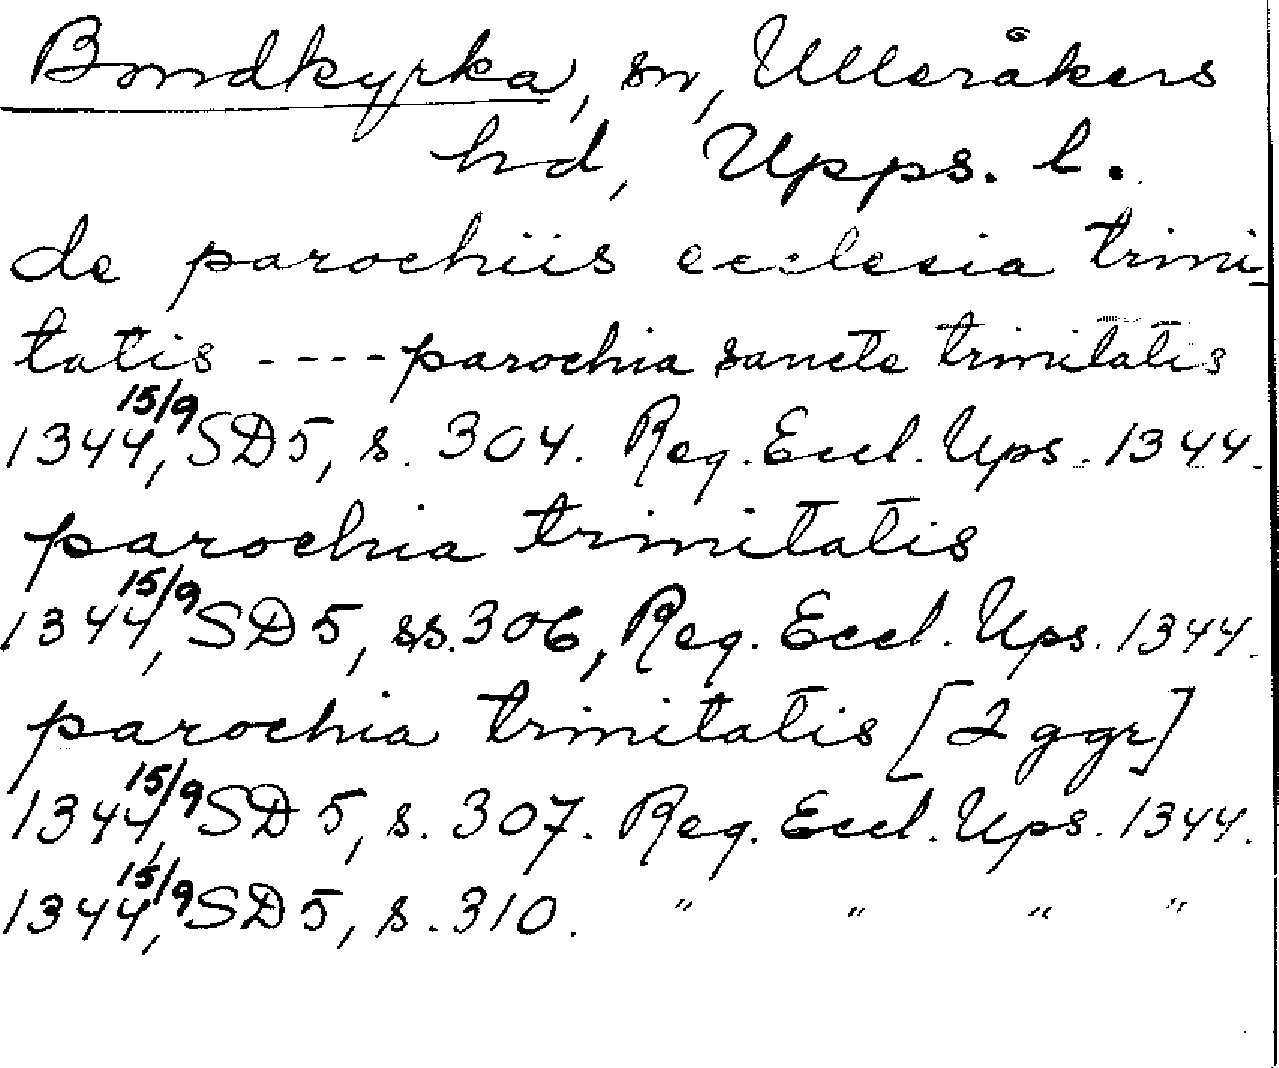 Bondkyrka, sn, Ulleråkers
hd, Upps. l.
de parochiis ecclesia trini-
tatis ---- parochia sancte trinitatis
1344 15/9, SD5, s. 304. Reg. Eccl. Ups. 1344.
parochia trinitatis
1344 15/9, SD5, ss. 306, Reg. Eccl. Ups. 1344.
parochia trinitatis [2 ggr]
1344 15/9, SD5, s. 307. Reg. Eccl. Ups. 1344.
1344 15/9, SD5, s. 310. " " " "